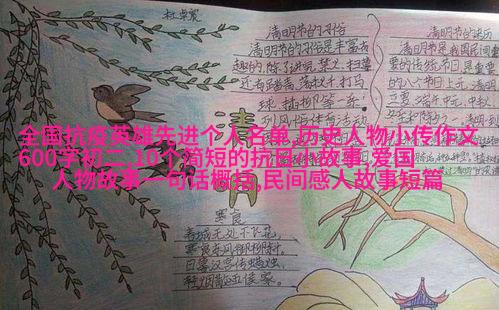 杜卓宸
清明节的习俗
清明节的习俗是丰富有
趣的,除了讲究禁火、扫墓
还有踏青、荡秋千、打马
球、插柳等一系
列风俗体育活动
清明节的来历
清明节是我国民间重
要的传统节日,是重要
的八个节日上元、清明
清明
全国抗疫英雄先进个人名单,历史人物小传作文
600字初二,10个简短的抗日小故事,爱国
人物故事一句话概括,民间感人故事短篇
寒食
春城无处不飞花,
寒食东风御柳斜。
日暮汉宫传蜡烛,
轻烟散五侯家。